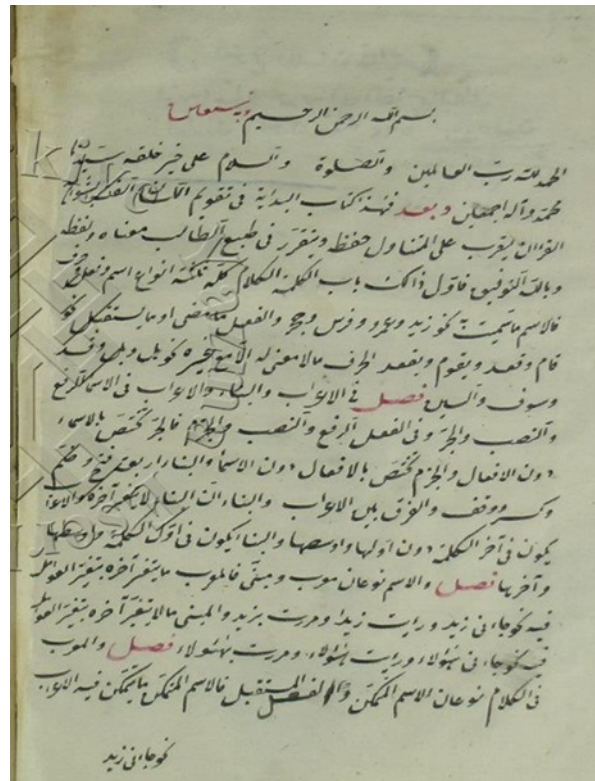 بسم الله الرحمن الرحيم وبه نستعين
الحمد لله رب العالمين والصلوة والسلام على خير خلقه سيدنا
محمد وآله اجمعين وبعد فهذا كتاب البداية في تقويم اللسان
القران يقرب على المتناول حفظه ويتقرر في طبع الطالب معناه ولفظه
وبالله التوفيق فاقول ذالك باب الكلمة الكلام كله ثلثة انواع اسم وفعل وحرف
فالاسم ما سميت به نحو زيد وعمرو وفرس وحجر والفعل ما مضى او ما يستقبل نحو
قام وقعد ويقوم ويقعد الحرف مالا معنى له الا مع غيره نحو هل وبل وقد
وسوف والسين فصل في الاعراب والبناء والاعراب في الاسماء الرفع
والنصب والجر وفي الفعل الرفع والنصب والجزم فالجر يختص بالاسماء
دون الافعال والجزم يختص بالافعال دون الاسماء والبناء اربعة فتح وضم
وكسر ووقف والفرق بين الاعراب والبناء ان البناء لا يتغير آخره والاعراب
يكون في آخر الكلمة دون اولها واوسطها والبناء يكون في اول الكلمة واوسطها
وآخرها فصل والاسم نوعان معرب ومبنى فالمعرب ما يتغير آخره بتغير العوامل
فيه نحو جاءنى زيد ورايت زيدا ومررت بزيد والمبنى مالا يتغير آخره بتغير العوامل
فيه نحو جاءنى هؤلاء ورايت هؤلاء ومررت بهؤلاء فصل والمعرب
في الكلام نوعان الاسم المتمكن والفعل المستقبل فالاسم المتمكن ما يتمكن فيه الاعراب
نحو جاءنى زيد